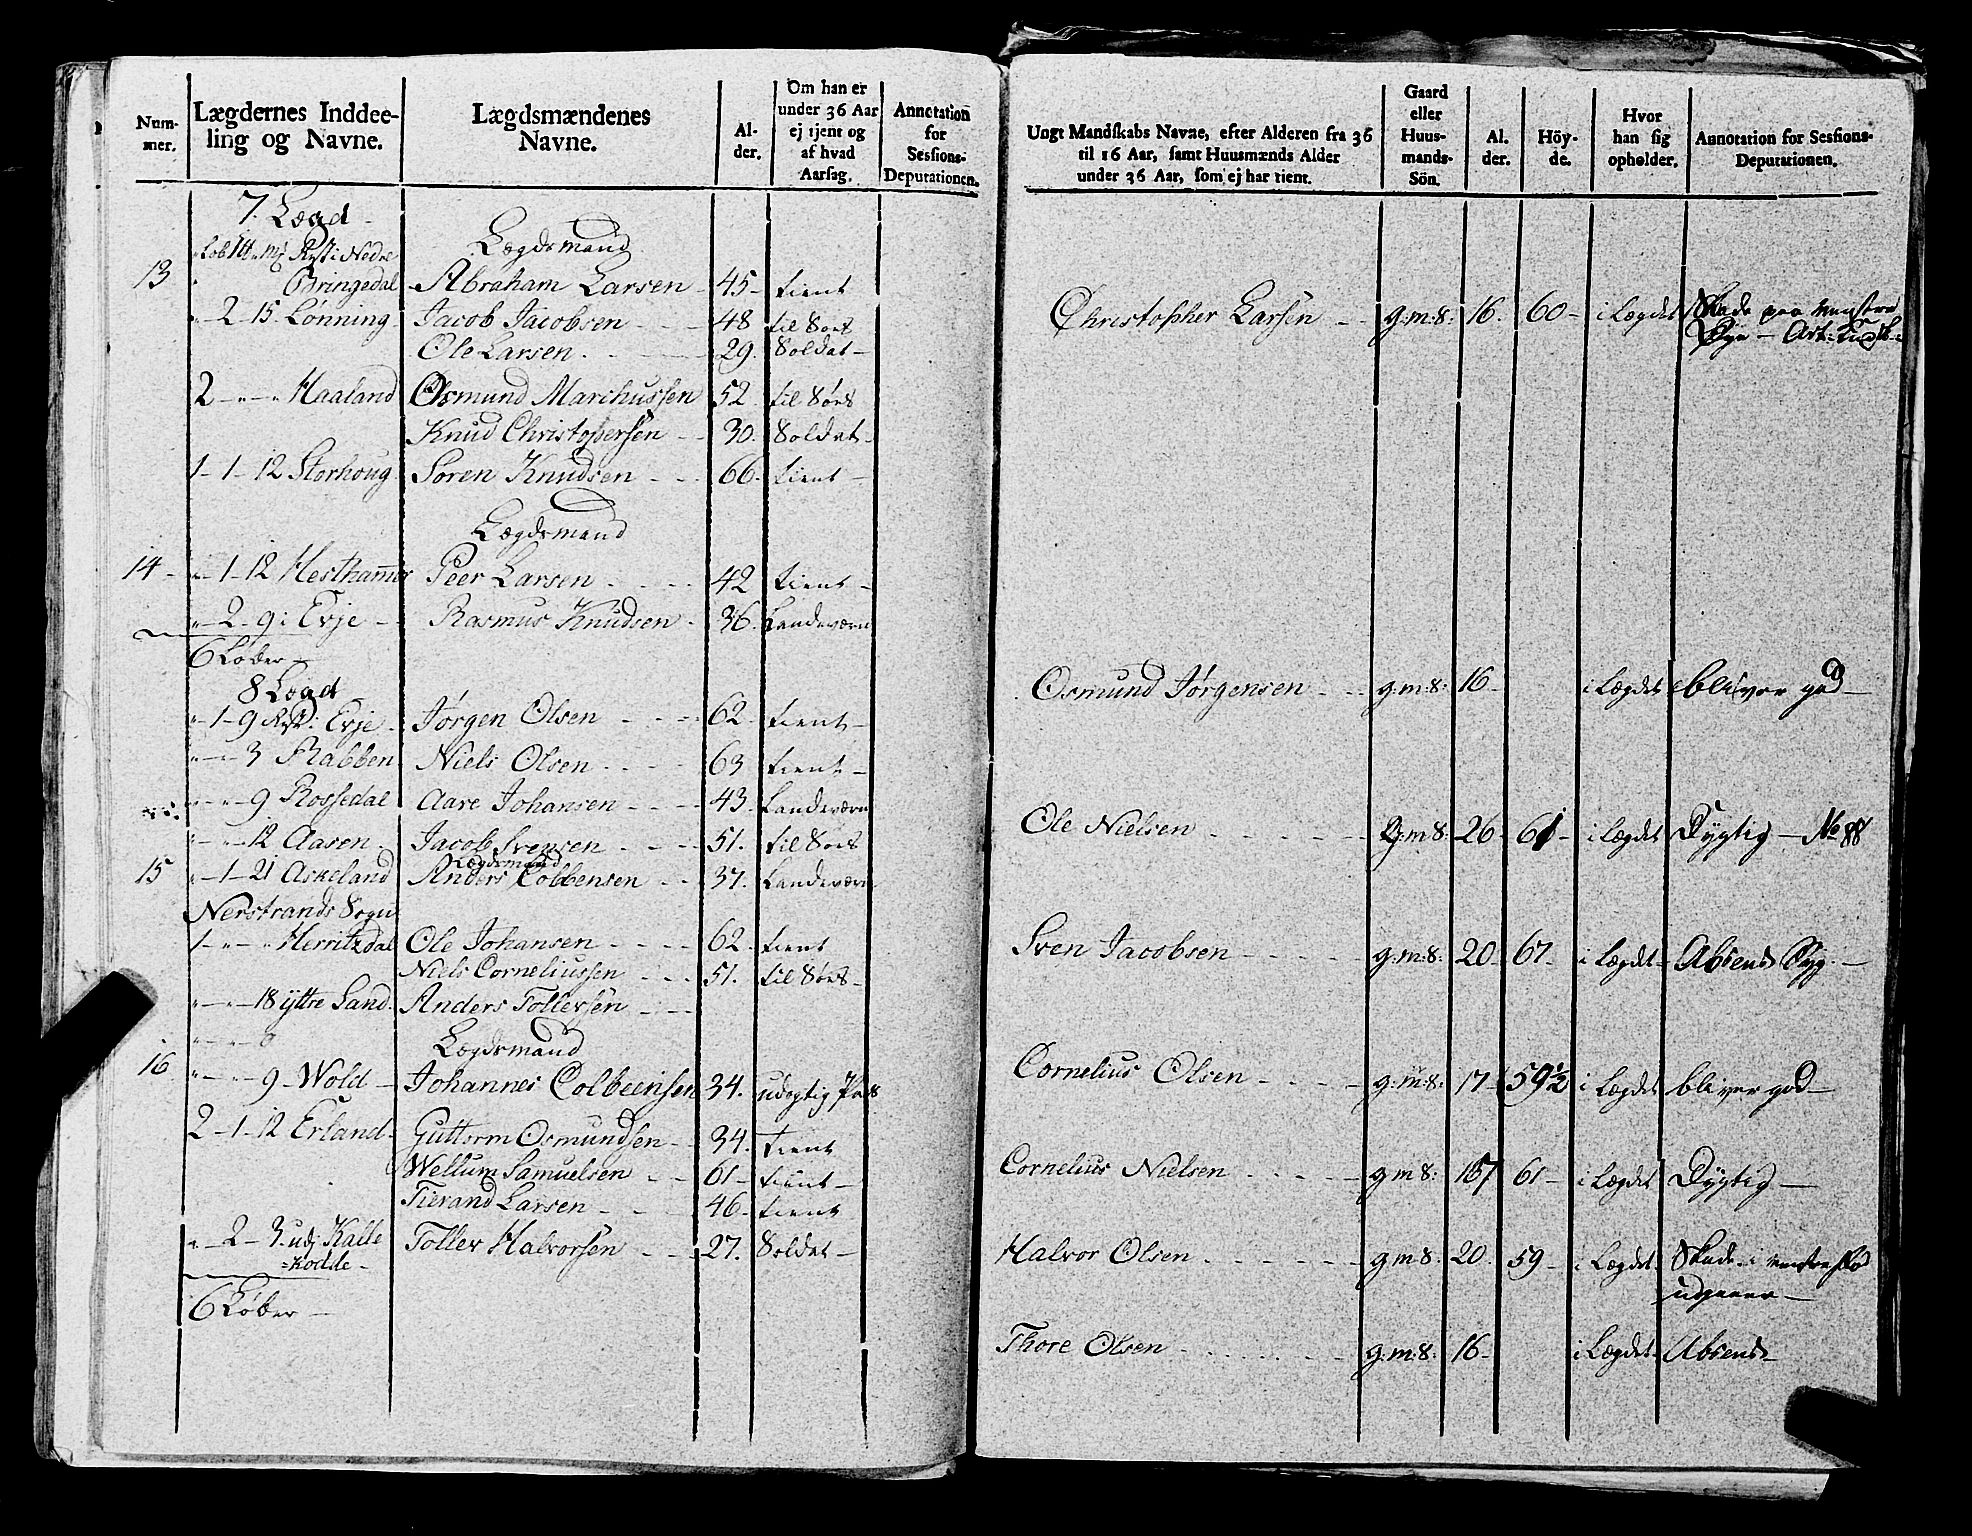 Num-
mer.
Lægdernes Inddee-
ling og Navne.
Lægdsmændenes
Navne.
Al-
der.
Om han er
under 36 Aar
ej tjent og
af hvad
Aarsag.
Annotation
for
Sessions-
Deputationen.
7. Lægd
Nedre Lægdsmand
13 Bringedal Abraham Larsen 45 tient
2 - 15 Lønning Jacob Jacobsen 48 til Søes
Ole Larsen 29. Soldat
2 - " - " Haaland Osmund Marchussen 52 til Søes
Knud Christophersen 30. Soldat
1 - 1 - 12 Storhoug Soren Knudsen 66 tient
Lægdsmand
14 " - 1 - 12 Hesthammer Peer Larsen 42 tient
" 2 - 9 Evje Rasmus Knudsen 36. Landeværn
6 Løber
8 Lægd
" - 1 - 9 Evje Jørgen Olsen 62 tient
" - " - 3 Rabben Niels Olsen 63 tient
" - " - 9 Rossedal Aare Johansen 43 Landeværn
" - " - 12 Aasen Jacob Svensen 51. til Søes
Lægdsmand
15 " - 1 - 21 Askeland Anders Colbensen 37. Landeværn
Nerstrands Sogn
1 - " - " Herritzdal Ole Johansen 62 tient
Niels Corneliussen 51. til Søes
" - " - 18 yttre Sand Anders Tollevsen
Lægdsmand
16 " - " - 9 Wold Johannes Colbeensen 34. udygtig
2 - 1 - 12 Erland Guttorm Osmundsen 34. tient
Wellum Samuelsen 61 tient
Tierand Larsen 46 tient
" - 2 - 3 udj Kalle Tollev Halvorsen 27. Soldat
=kodde
6 Løber
Ungt Mandskabs Navne, efter Alderen fra 36
til 16 Aar, samt Huusmænds Alder
under 36 Aar, som ej har tient.
Gaard
eller
Huus-
mands-
Sön.
Al.
der.
Höy-
de.
Hvor
han sig
opholder.
Annotation for Sessions-
Deputationen.
Christopher Larsen g:m:s: 16. 60 i Lægdet Skade paa venstre
Øye
Osmund Jørgensen g:m:s: 16 i Lægdet bliver god
Ole Nielsen g:m:s: 26 61 i Lægdet Dygtig No 88
Sven Jacobsen g:m:s: 20 67 i Lægdet Absend
Cornelius Olsen g:m:s: 17 59½ i Lægdet bliver god
Cornelius Nielsen g m s: 17 61 i Lægdet Dygtig
Halvor Olsen g m s: 20 59 i Lægdet Skade i venstre Fod
udgaaer
Thore Olsen g:m:s: 16 i Lægdet Absend